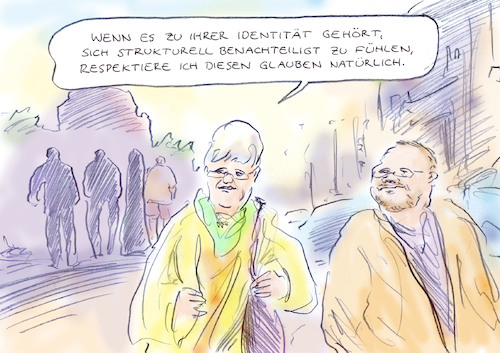 WENN ES ZU IHRER IDENTITÄT GEHÖRT,
SICH STRUKTURELL BENACHTEILIGT ZU FÜHLEN,
RESPEKTIERE ICH DIESEN GLAUBEN NATÜRLICH.